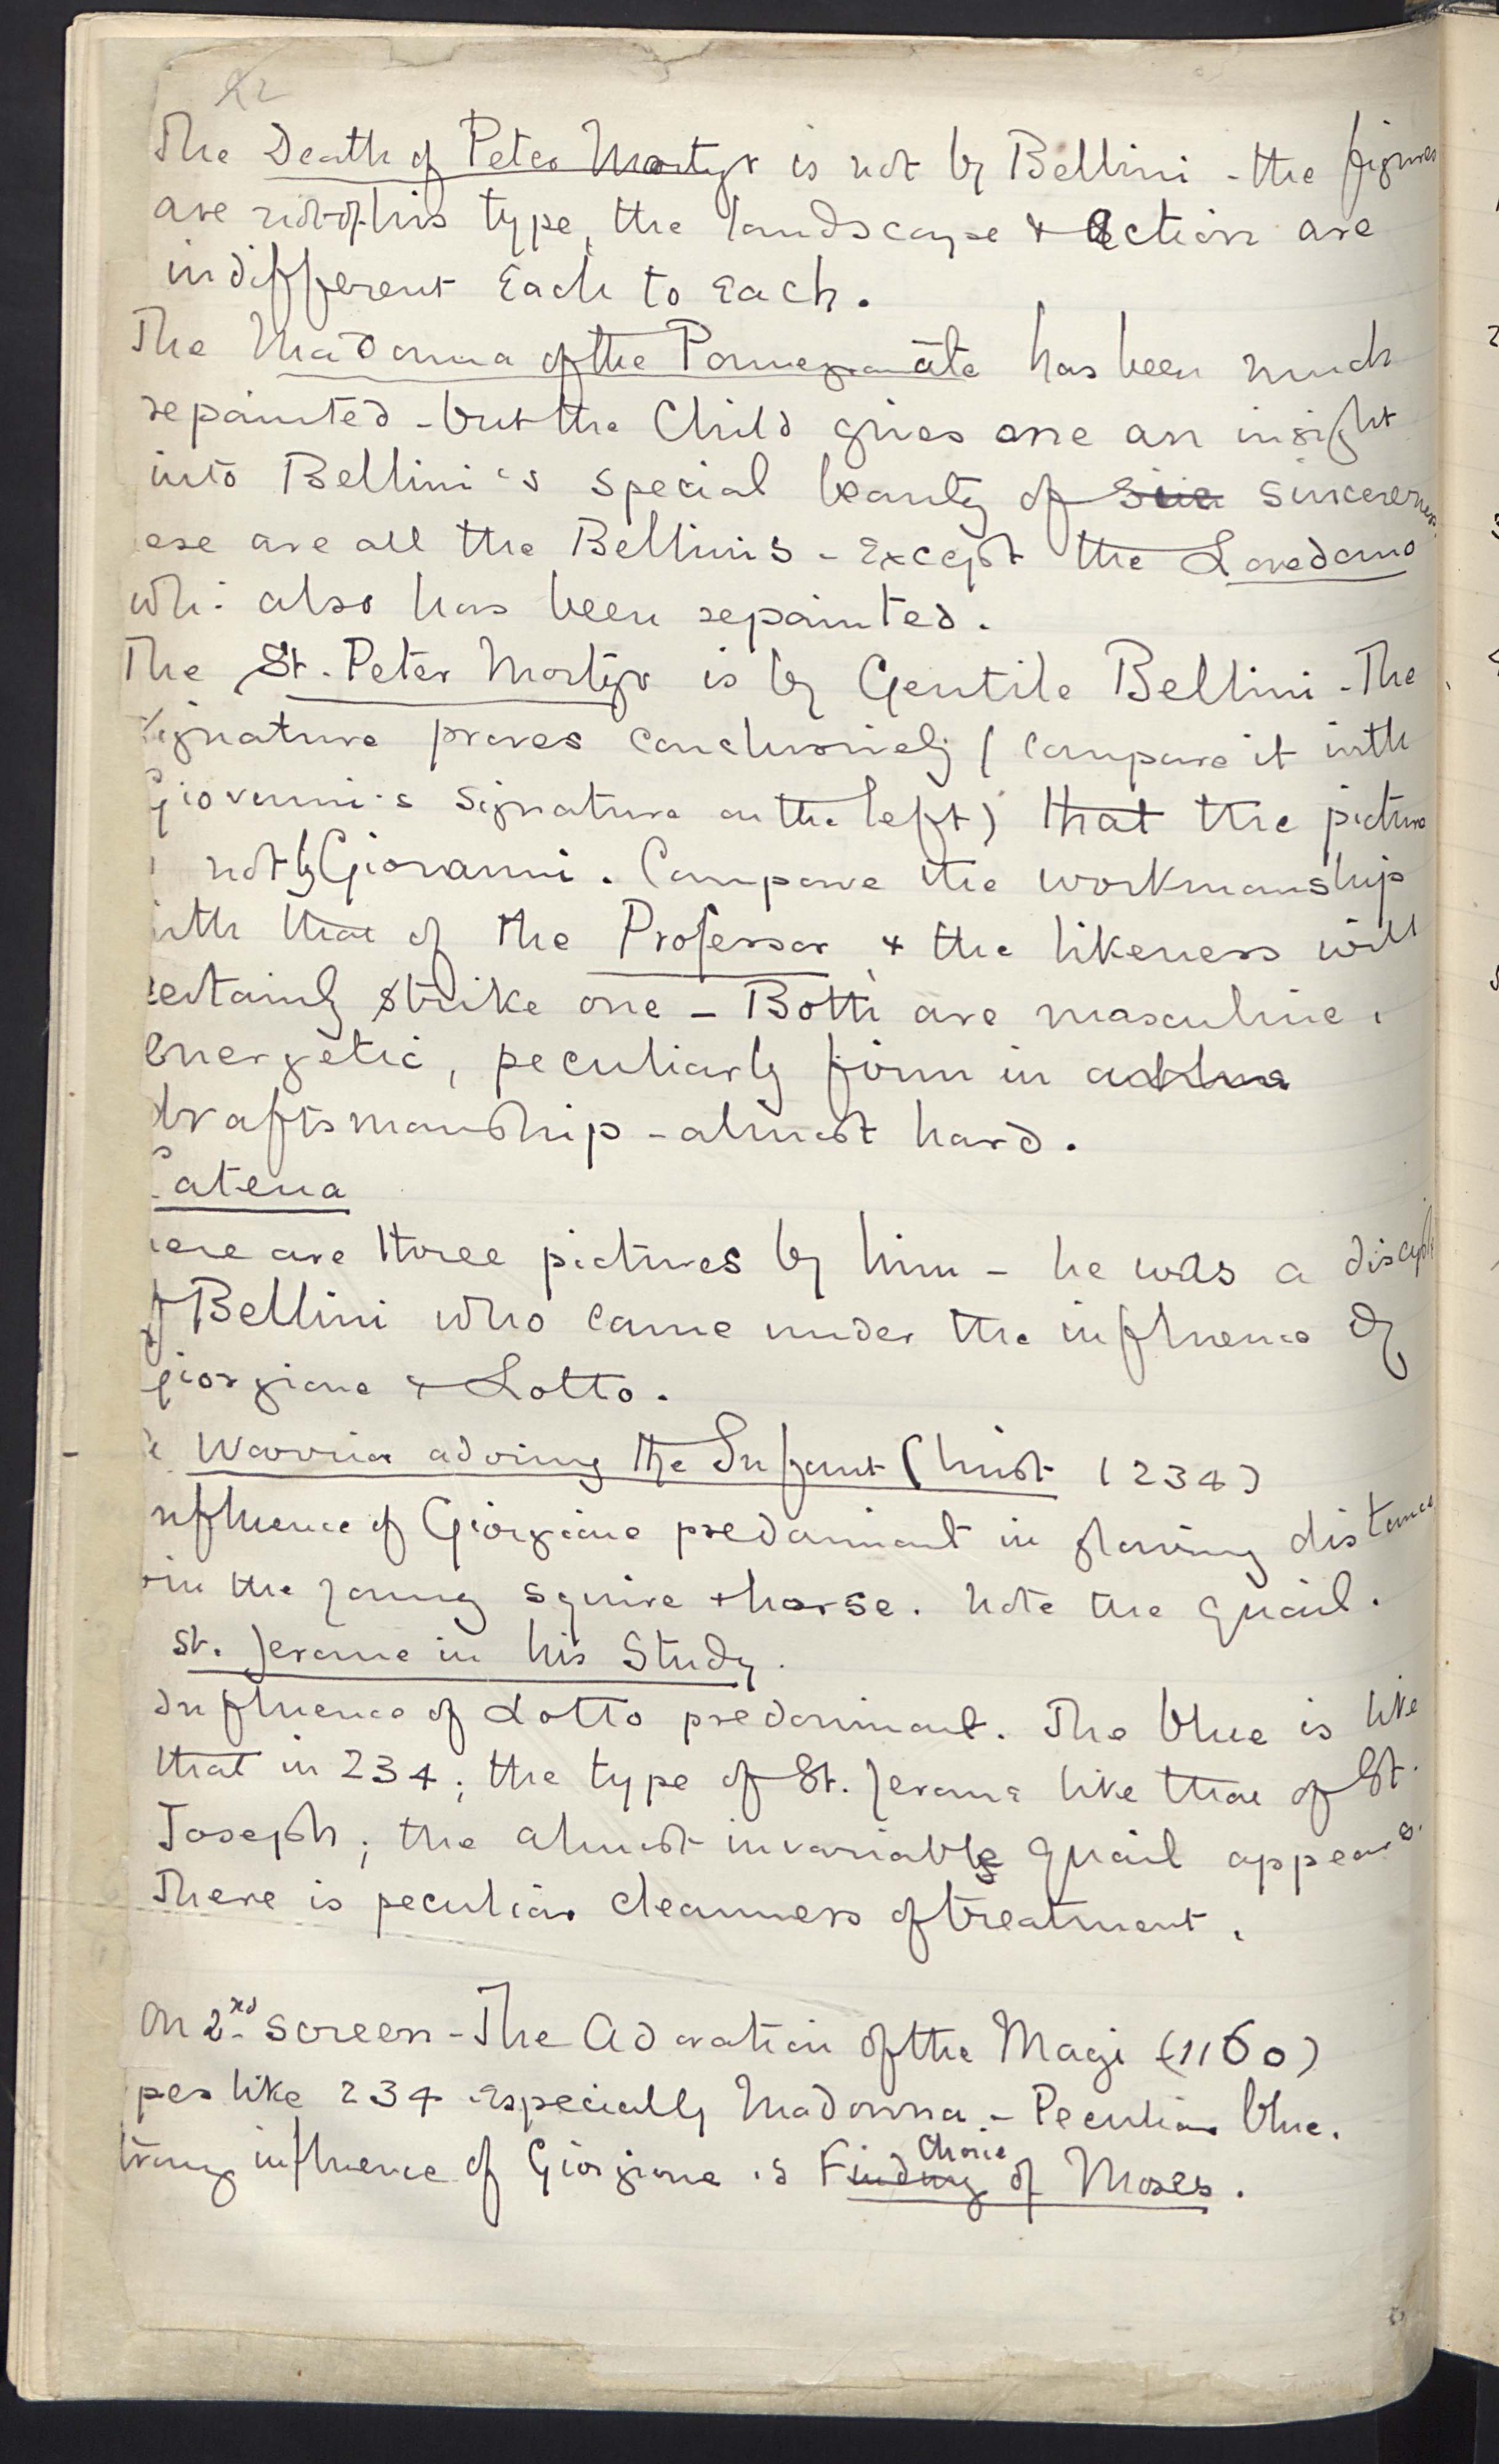 22
The Death of Peter Martyr is not by Bellini - the figures
are not of his type, the landscape & action are
indifferent each to each.
The Madonna of the Pomegranate has been much
repainted - but the Child gives one an insight
into Bellini's special beauty of sin sincereness
ese are all the Bellinis - except the Loredano
wh: also has been repainted.
The St. Peter Martyr is by Gentile Bellini - The
signature proves conclusively (compare it with
Giovanni's signature on the left) that the picture
not by Giovanni. Compare the workmanship
ith that of the Professor, & the likeness will
certainly strike one - Both are masculine,
energetic, peculiarly firm in
draftsmanship - almost hard.
Catena
here are three pictures by him - he was a disciple
of Bellini who came under the influence of
Giorgione & Lotto.
e Warrior adoring the Infant Christ (234)
nfluence of Giorgione predominant in glowing distance
in the young squire & horse. Note the quail.
St. Jerome in his Study.
Influence of Lotto predominant. The blue is like
that in 234; the type of St. Jerome like that of St.
Joseph; the almost invariable quail appears.
There is peculiar cleanness of treatment.
On 2nd screen - The Adoration of the Magi (1160)
pes like 234 especially Madonna - Peculiar blue.
trong influence of Giorgione's Finding Choice of Moses.